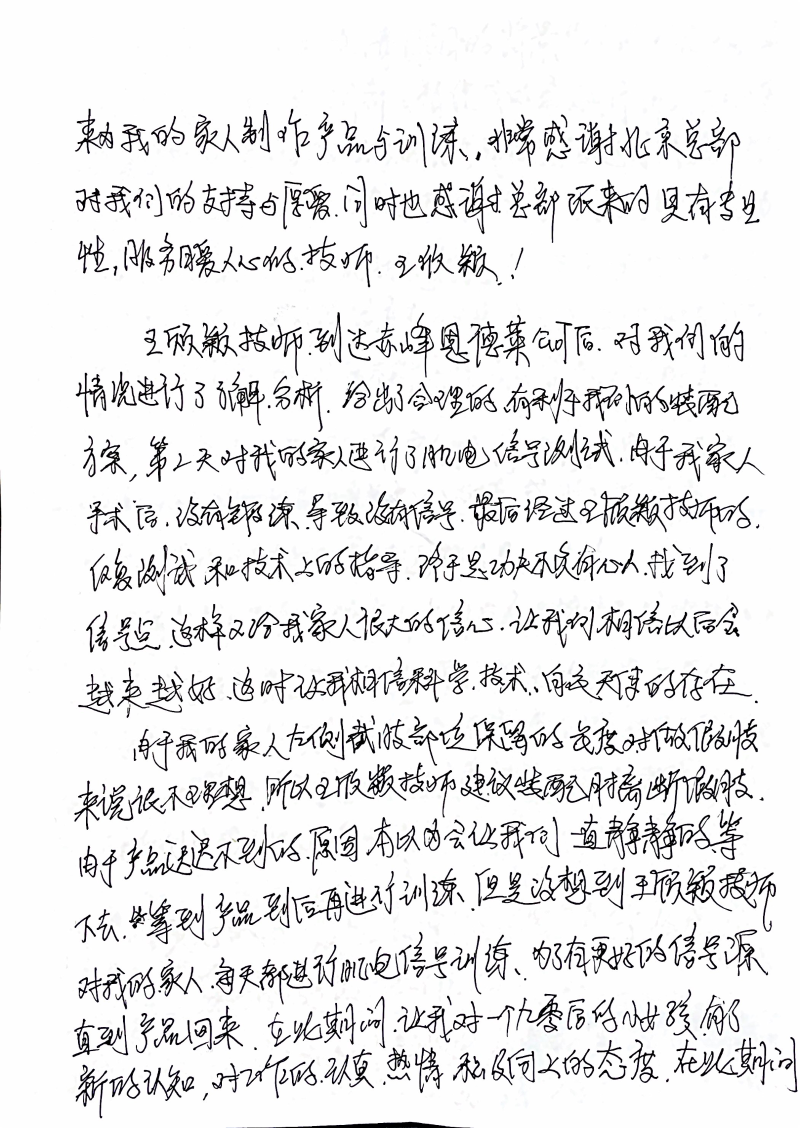 来为我的家人制作产品与训练,非常感谢北京总部
对我们的支持与厚爱.同时也感谢总部派来的具有专业
性,服务暖人心的.技师.王欣颖!
王欣颖技师.到达赤峰恩德莱公司后.对我们的
情况进行了了解.分析.给出了合理的.有利于我们的装配
方案,第2天对我的家人进行了肌电信号测试.由于我家人
手术后.没有锻练.导致没有信号.最后经过王欣颖技师的.
反复测试.和技术上的指导.终于是功夫不负有心人.找到了
信号点.这样又给我家人很大的信心.让我们相信以后会
越来越好.这时让我相信科学.技术.的存在.
由于我的家人左侧截肢部位保留的长度对做假肢
来说很不理想.所以王欣颖技师建议装配肘离断假肢.
由于产品迟迟不到的.原因.本以为会让我们一直静静的.等
下去.等到产品到后再进行训练.但是没想到王欣颖技师
对我的家人.每天都进行肌电信号训练、为了有更好的信号源
直到产品回来.在此期间.让我对一个九零后的小女孩.有了
新的认知,对工作的.认真.热情.积极向上的态度.在此期间